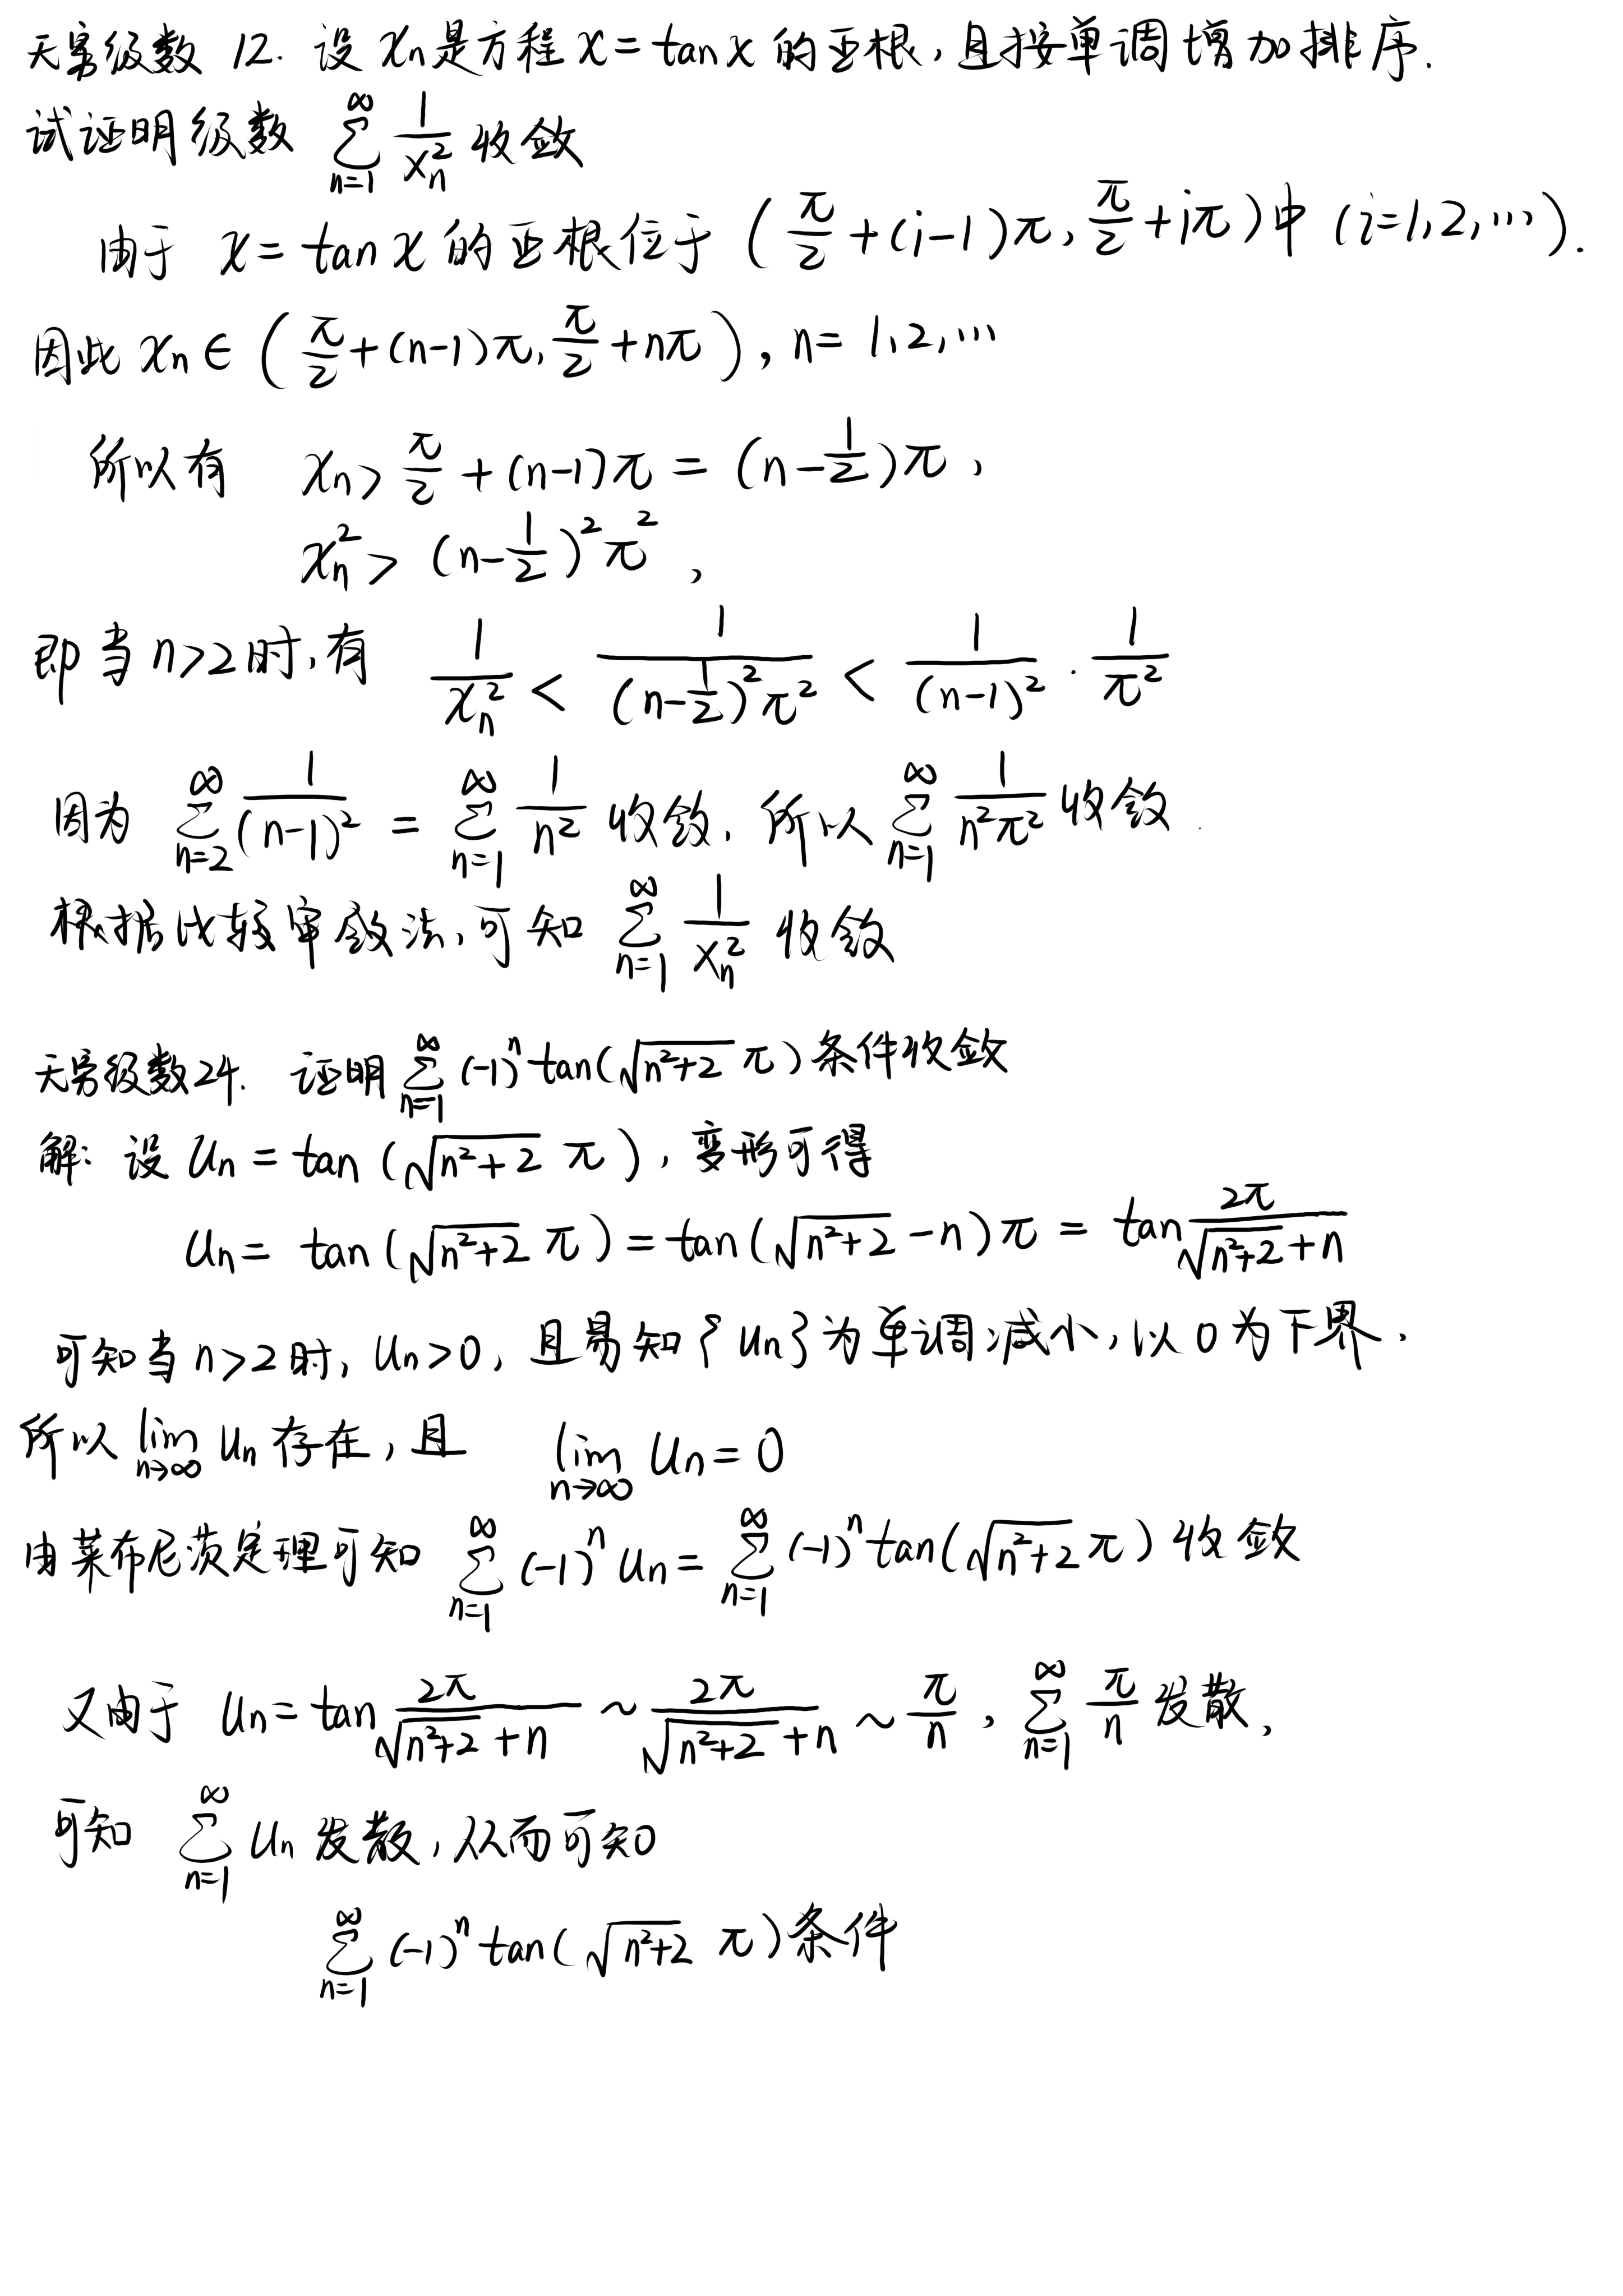 无穷级数 12. 设 xn是方程 x = tan x 的正根,且按单调增加排序.
试证明级数 ∑_{n=1}^{∞} 1/x_n^2 收敛
由于 x = tan x 的正根位于 (π/2 + (i-1)π, π/2 + iπ)中 (i=1,2,…).
因此 xn ∈ (π/2 + (n-1)π, π/2 + nπ), n = 1,2,…
所以有 xn > π/2 + (n-1)π = (n - 1/2)π,
x_n^2 > (n - 1/2)^2 π^2,
即当 n>2 时,有 1/x_n^2 < 1/((n - 1/2)^2 π^2) < 1/(n-1)^2 · 1/π^2
因为 ∑_{n=2}^{∞} 1/(n-1)^2 = ∑_{n=1}^{∞} 1/n^2 收敛, 所以 ∑_{n=1}^{∞} 1/(n^2π^2) 收敛
根据比较审敛法,可知 ∑_{n=1}^{∞} 1/x_n^2 收敛
无穷级数24. 证明 ∑_{n=1}^{∞} (-1)^n tan(√(n^2+2) π) 条件收敛
解: 设 Un = tan (√(n^2+2) π), 变形可得
Un = tan (√(n^2+2) π) = tan (√(n^2+2) - n)π = tan 2π/(√(n^2+2) + n)
可知当 n>2 时, Un>0, 且易知 {Un} 为单调减小,以 0 为下界,
所以 lim_{n→∞} Un 存在,且 lim_{n→∞} Un = 0
由莱布尼茨定理可知 ∑_{n=1}^{∞} (-1)^n Un = ∑_{n=1}^{∞} (-1)^n tan(√(n^2+2) π) 收敛
又由于 Un = tan 2π/(√(n^2+2) + n) ~ 2π/(√(n^2+2) + n) ~ π/n, ∑_{n=1}^{∞} π/n 发散,
可知 ∑_{n=1}^{∞} Un 发散,从而可知
∑_{n=1}^{∞} (-1)^n tan(√(n^2+2) π) 条件